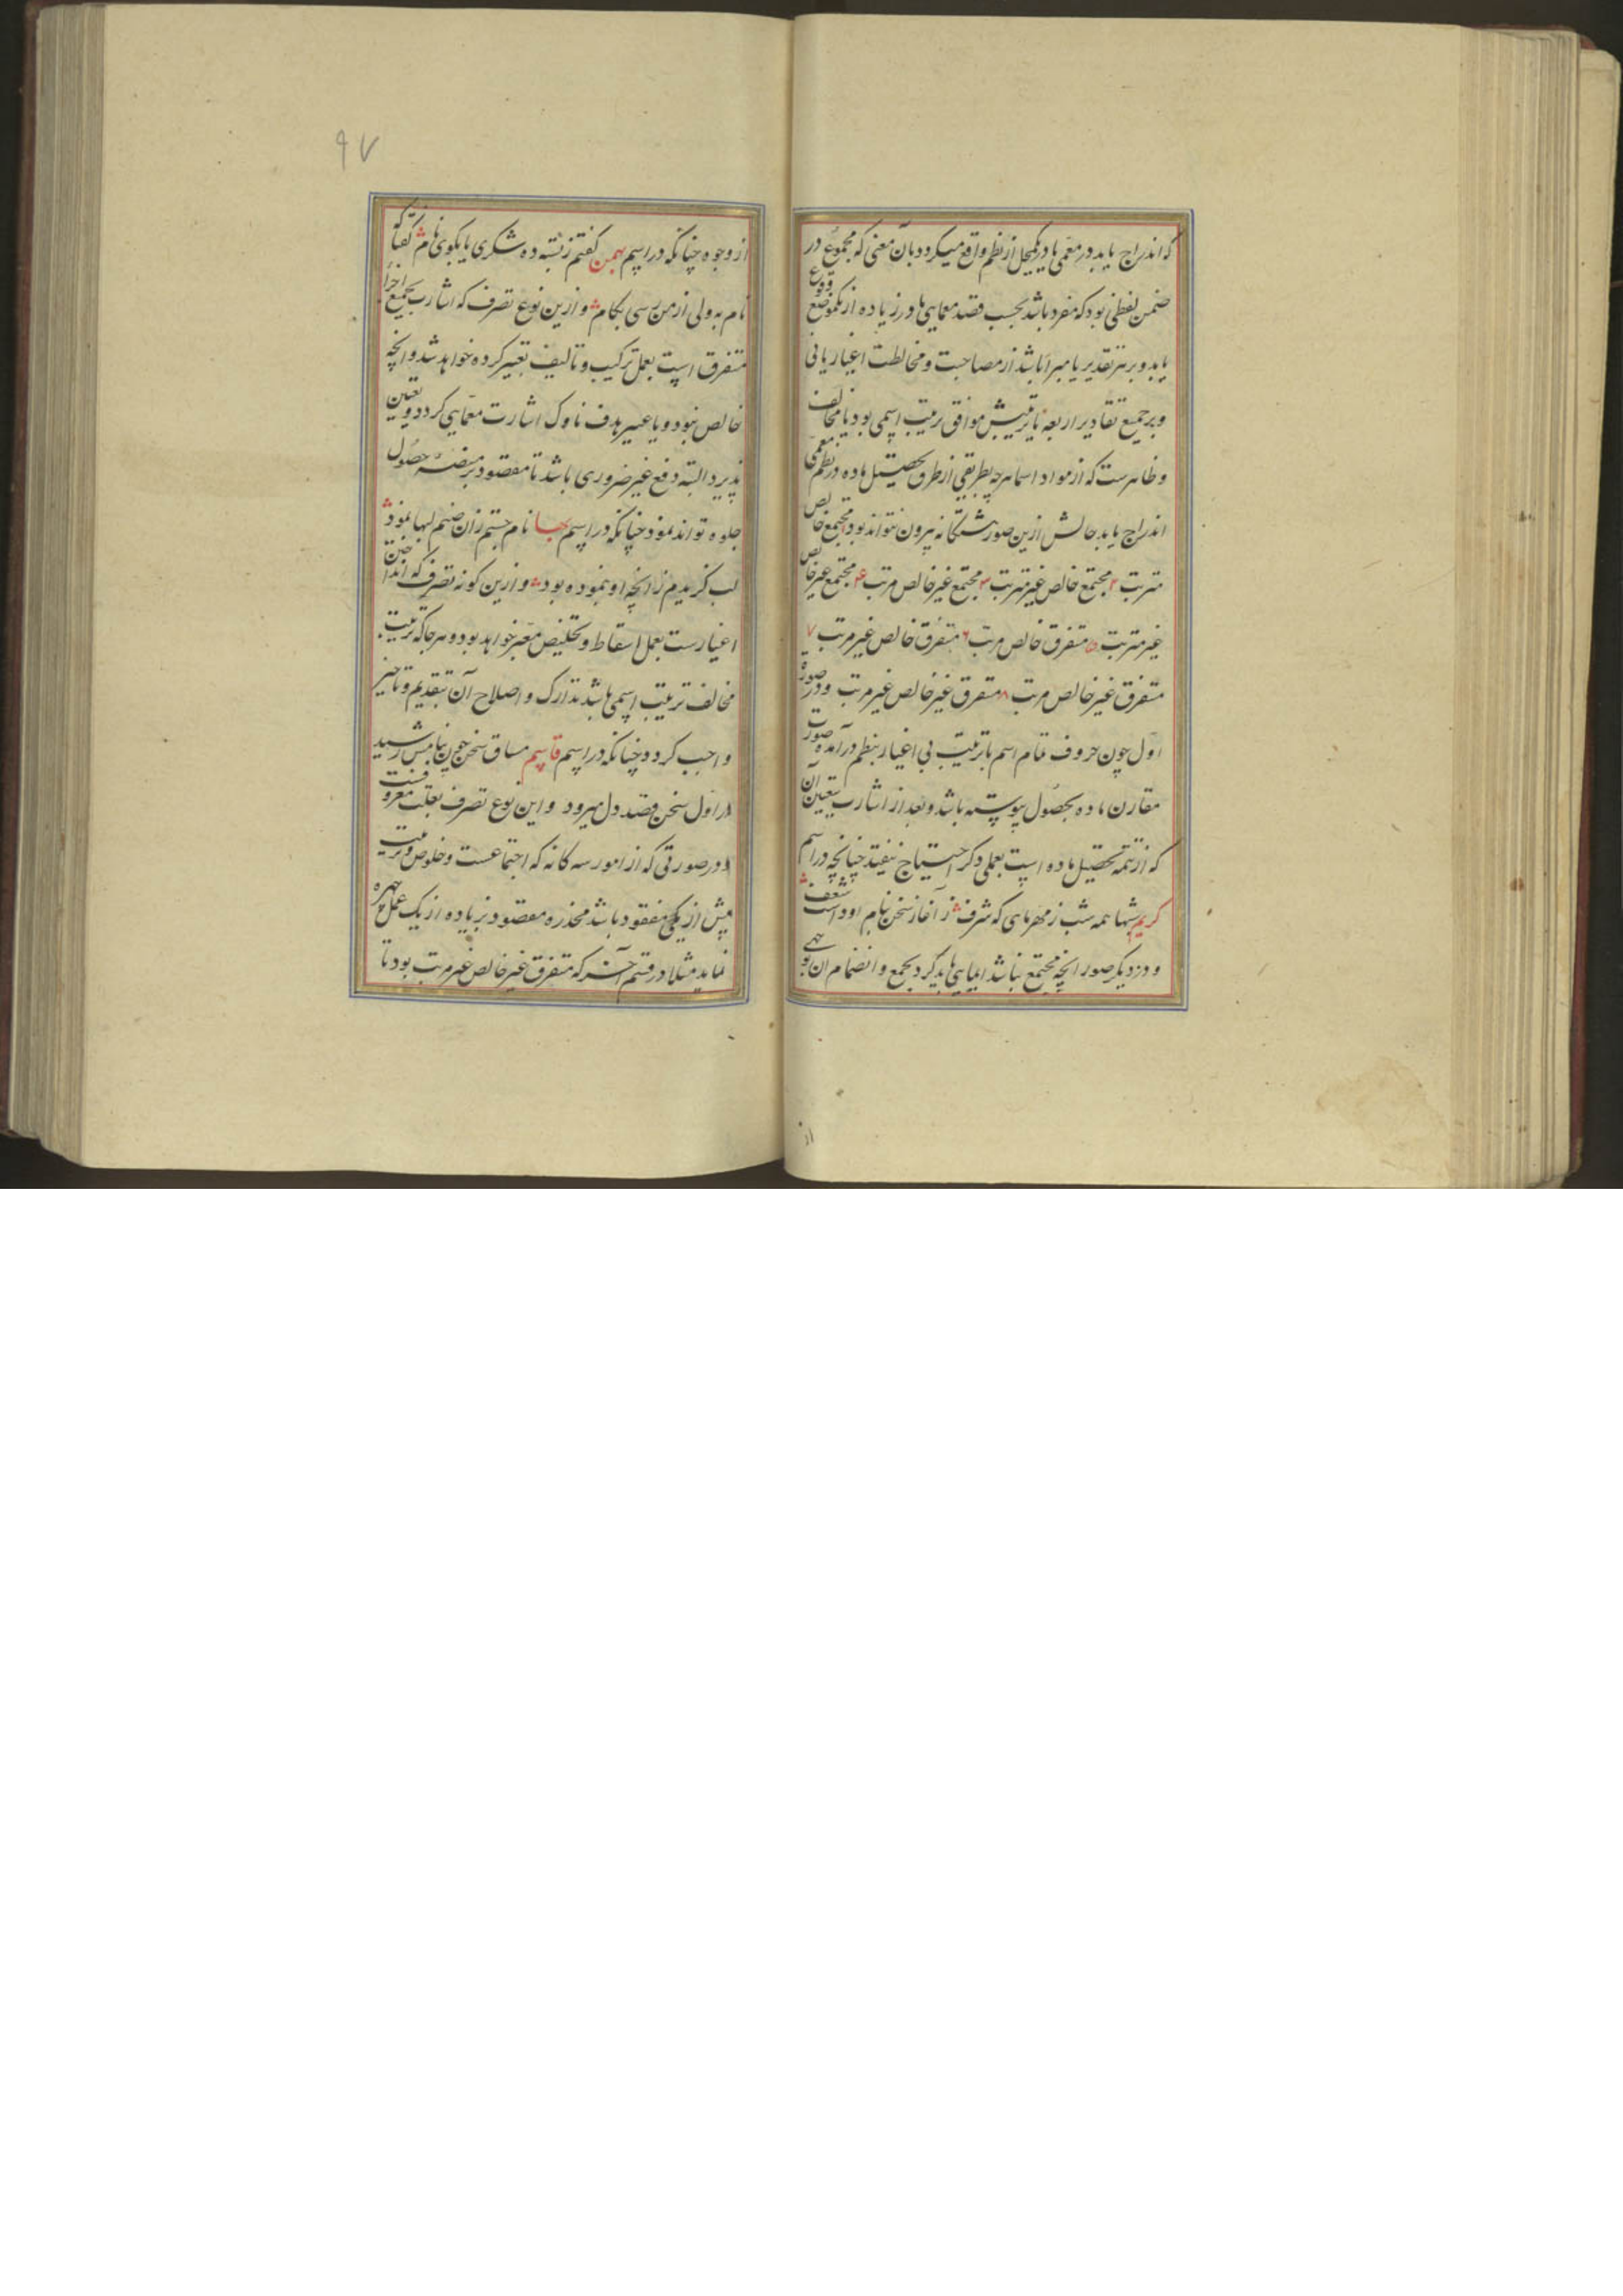 که اندراج یابد در معمی یا در یکمحل از نظم واقع میکردد بآن معنی که مجموع در
ضمن لفظی بود که مفرد باشد بحسب قصد معمایی یا در زیاده از یکموضع وقوع
یابد و بر هر تقدیر یا مبرا باشد از مصاحبت و مخالطت اغیار یا نی
و بر جمیع تقادیر اربعه یا ترتیبش موافق ترتیب اسمی بود یا مخالف
و ظاهرست که از مواد اسما هرچه بطریقی از طرق تحصیل ماده در نظم معمی
اندراج یابد حالش ازین صور هشتگانه بیرون نتواند بود ۱ مجتمع خالص
مترتب ۲ مجتمع خالص غیر مترتب ۳ مجتمع غیر خالص مرتب ۴ مجتمع غیر خالص
غیر مترتب ۵ متفرق خالص مرتب ۶ متفرق خالص غیر مرتب ۷
متفرق غیر خالص مرتب ۸ متفرق غیر خالص غیر مرتب و در صورة
اول چون حروف تمام اسم بترتیب بی اغیار بنظم درآمده صورت
مقارن ماده بحصول پیوسته باشد و بعد از اشارت بتعیین آن
که از تتمه تحصیل ماده است بعملی دکر احتیاج نیفتد چنانچه در اسم
کریم شبها همه شب ز مهرهای که شرف ز آغاز سخن بنام او داشت شعف
و در دیکر صور انچه مجتمع نباشد ایمایی باید کرد بجمع و انضمام ان بوجهی
از
۹۷
از وجوه چنانکه در اسم بهمن کفتم ز بسته ده شکری یا بکوی نام کفتا که
نام به ولی از من رسی بکام و ازین نوع تصرف که اشارت بجمیع اجزا
متفرق است بعمل ترکیب و تالیف تعبیر کرده خواهد شد و انچه
خالص نبود و با غیر هدف ناوک اشارت معمایی کردد و تعیین
پذیرد البته دفع غیر ضروری باشد تا مقصود بر منصه حصول
جلوه تواند نمود چنانکه در اسم بها نام جستم زان صنم لبها نمود
لب کزیدم زانچه او بنموده بود و ازین کونه تصرف که انداختن
اغیارست بعمل اسقاط و تخلیص معبر خواهد بود و هرجا که ترتیب
مخالف ترتیب اسمی باشد تدارک و اصلاح آن بتقدیم و تاخیر
واجب کردد چنانکه در اسم قاسم مساق سخن چون بنامش رسید
در اول سخن قصد دل میرود و این نوع تصرف بقلب معروفست
و در صورتی که از امور سه کانه که اجتماعست و خلوص و ترتیب
پیش از یکی مفقود باشد مخدره مقصود بزیاده از یک عمل چهره
نماید مثلا در قسم آخر که متفرق غیر خالص غیر مرتب بود تا